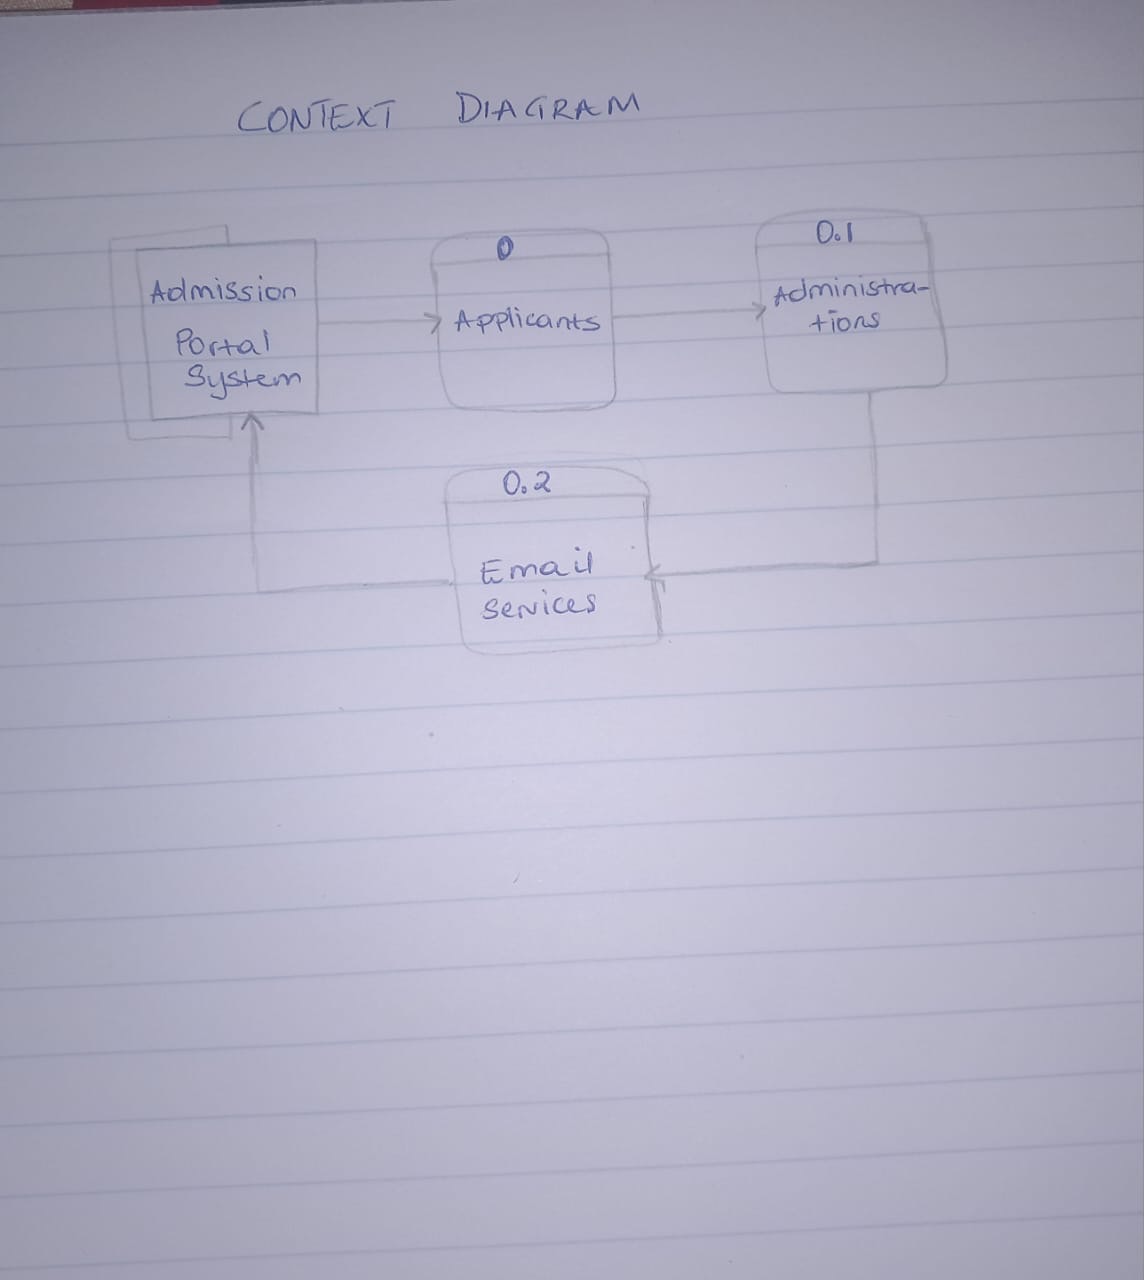 CONTEXT DIAGRAM
Admission
Portal
System
0
Applicants
0.1
Administra-
tions
0.2
Email
Services